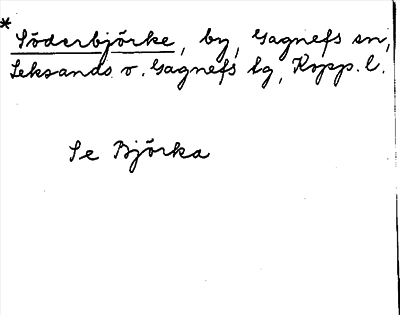 * Söderbjörke, by, Gagnefs sn,
Leksands o. Gagnefs tg, Kopp. l.
Se Björka